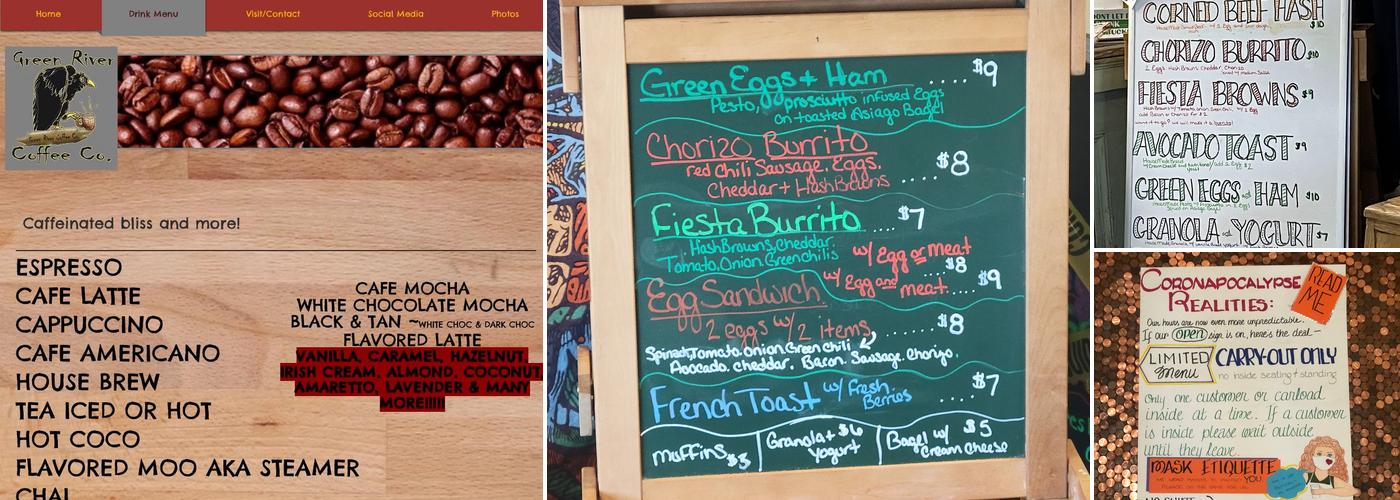 Home
Drink Menu
Visit/Contact
Social Media
Photos
Green River
Coffee Co.
Caffeinated bliss and more!
ESPRESSO
CAFE LATTE
CAPPUCCINO
CAFE AMERICANO
HOUSE BREW
TEA ICED OR HOT
HOT COCO
FLAVORED MOO AKA STEAMER
CHAI
CAFE MOCHA
WHITE CHOCOLATE MOCHA
BLACK & TAN ~WHITE CHOC & DARK CHOC
FLAVORED LATTE
VANILLA, CARAMEL, HAZELNUT,
IRISH CREAM, ALMOND, COCONUT,
AMARETTO, LAVENDER & MANY
MORE!!!!!
Green Eggs + Ham ......$9
Pesto, prosciutto infused Eggs
on toasted Asiago Bagel
Chorizo Burrito
red Chili Sausage, Eggs,
Cheddar + HashBrowns .....$8
Fiesta Burrito .... $7
HashBrowns, Cheddar,
Tomato, Onion, Greenchilis
w/ Egg or meat
...$8
w/ Egg and
meat.....$9
Egg Sandwich
2 eggs w/ 2 items .....$8
Spinach, Tomato, Onion, Green Chili
Avocado, cheddar, Bacon, Sausage, Chorizo.
French Toast w/ Fresh
Berries ......$7
muffins $3
Granola + $6
Yogurt
Bagel w/ $5
Cream Cheese
CORNED BEEF HASH
$10
CHORIZO BURRITO $10
2 Eggs, Hash Browns, Cheddar, Chorizo
FIESTA BROWNS $9
add Bacon or Chorizo for $2
AVOCADO TOAST $9
House Made Bread
GREEN EGGS and HAM $10
GRANOLA and YOGURT $7
CORONAPOCALYPSE
REALITIES:
READ
ME
Our hours are now even more unpredictable.
If our open sign is on, here's the deal—
LIMITED
menu
CARRY-OUT ONLY
no inside seating + standing
Only one customer or carload
inside at a time. If a customer
is inside please wait outside
until they leave.
MASK ETIQUETTE
YOU.